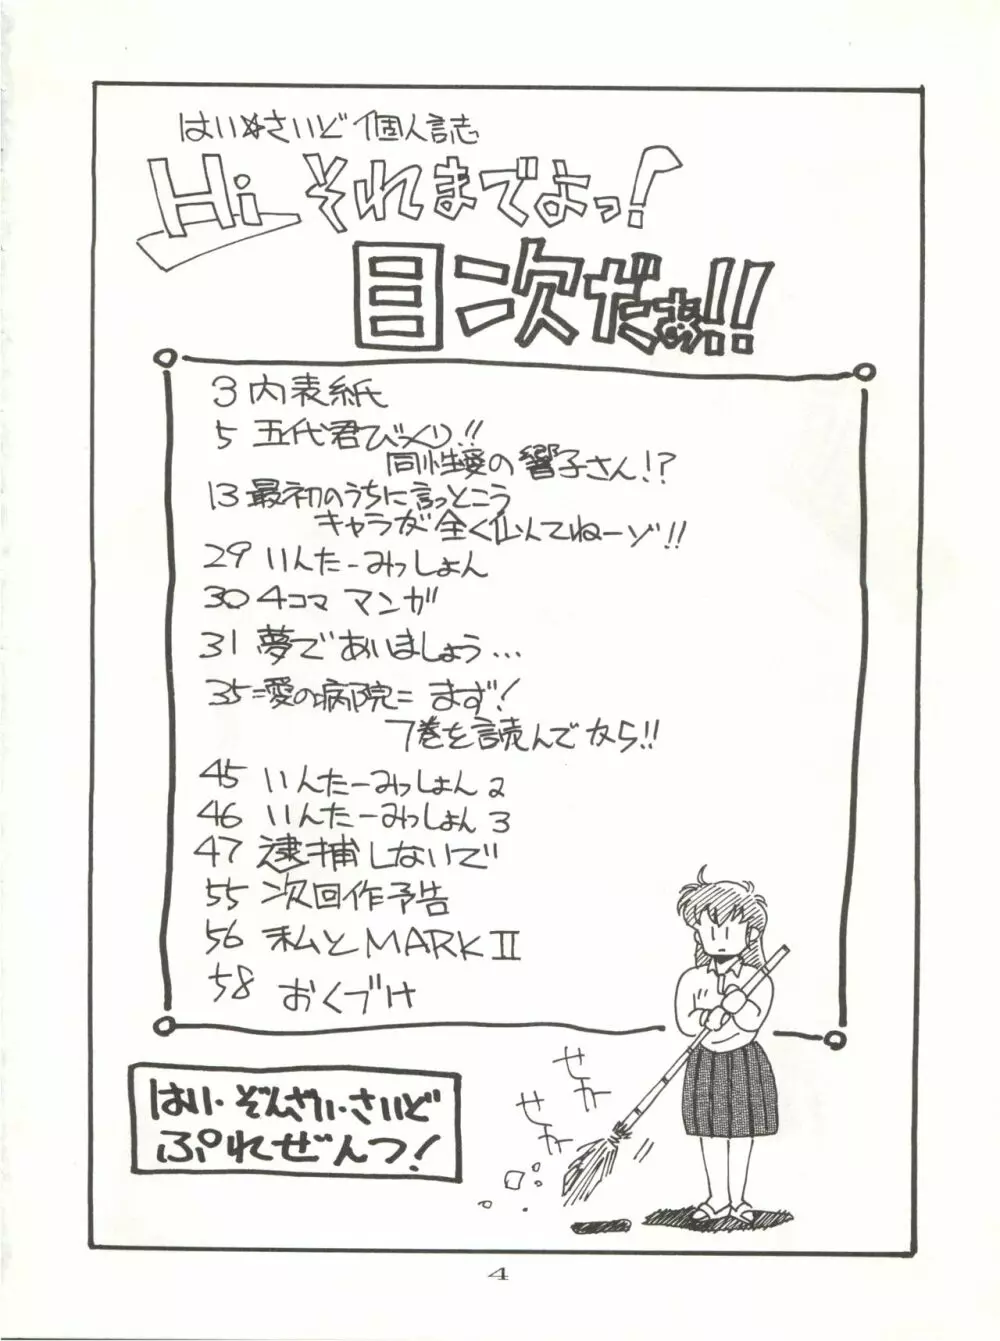 はい☆さいど個人誌
Hi それまでよっ!
目次だぁ!!
3 内表紙
5 五代君びっくり!!
同性愛の響子さん!?
13 最初のうちに言っとこう
キャラが全く似てねーゾ!!
29 いんたーみっしょん
30 4コママンガ
31 夢であいましょう...
35 =愛の病院= まず!
7巻を読んでから!!
45 いんたーみっしょん2
46 いんたーみっしょん3
47 逮捕しないで
55 次回作予告
56 私とMARK II
58 おくづけ
せか
せか
はい・ぞんざい・さいど
ぷれぜんつ!
4